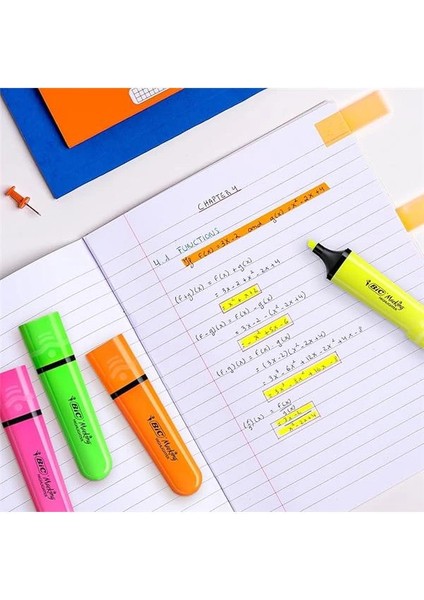 CHAPTER 4
4.1 FUNCTIONS
If F(x) = 3x-2 and g(x) = x²-2x+4
(F+g)(x) = F(x) + g(x)
= 3x-2+x²-2x+4
= x²+x+2
(F-g)(x) = F(x) - g(x)
= 3x-2-(x²-2x+4)
(F.g)(x) = F(x). g(x)
= (3x-2)(x²-2x+4)
F(x)
g(x)
3x-2
x²-2x+4
BIC Marking
BIC Marking
BIC Marking
BIC Marking